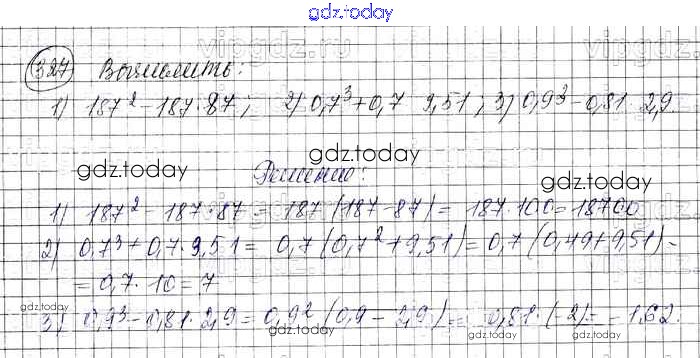 gdz.today
vipgdz.ru
327 Вычислить:
1) 187² - 187·87; 2) 0,7³ + 0,7 9,51; 3) 0,9³ - 0,81 2,9.
gdz.today
gdz.today
gdz.today
Решение:
1) 187² - 187·87 = 187 (187 - 87) = 187·100 = 18700
2) 0,7³ + 0,7·9,51 = 0,7 (0,7² + 9,51) = 0,7 (0,49 + 9,51) =
= 0,7 · 10 = 7
gdz.today
gdz.today
3) 0,9³ - 0,81·2,9 = 0,9² (0,9 - 2,9) = 0,81·(-2) = -1,62.
gdz.today
gdz.today